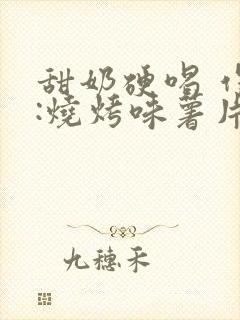 甜奶硬唱
:燒烤味薯片
九穗禾